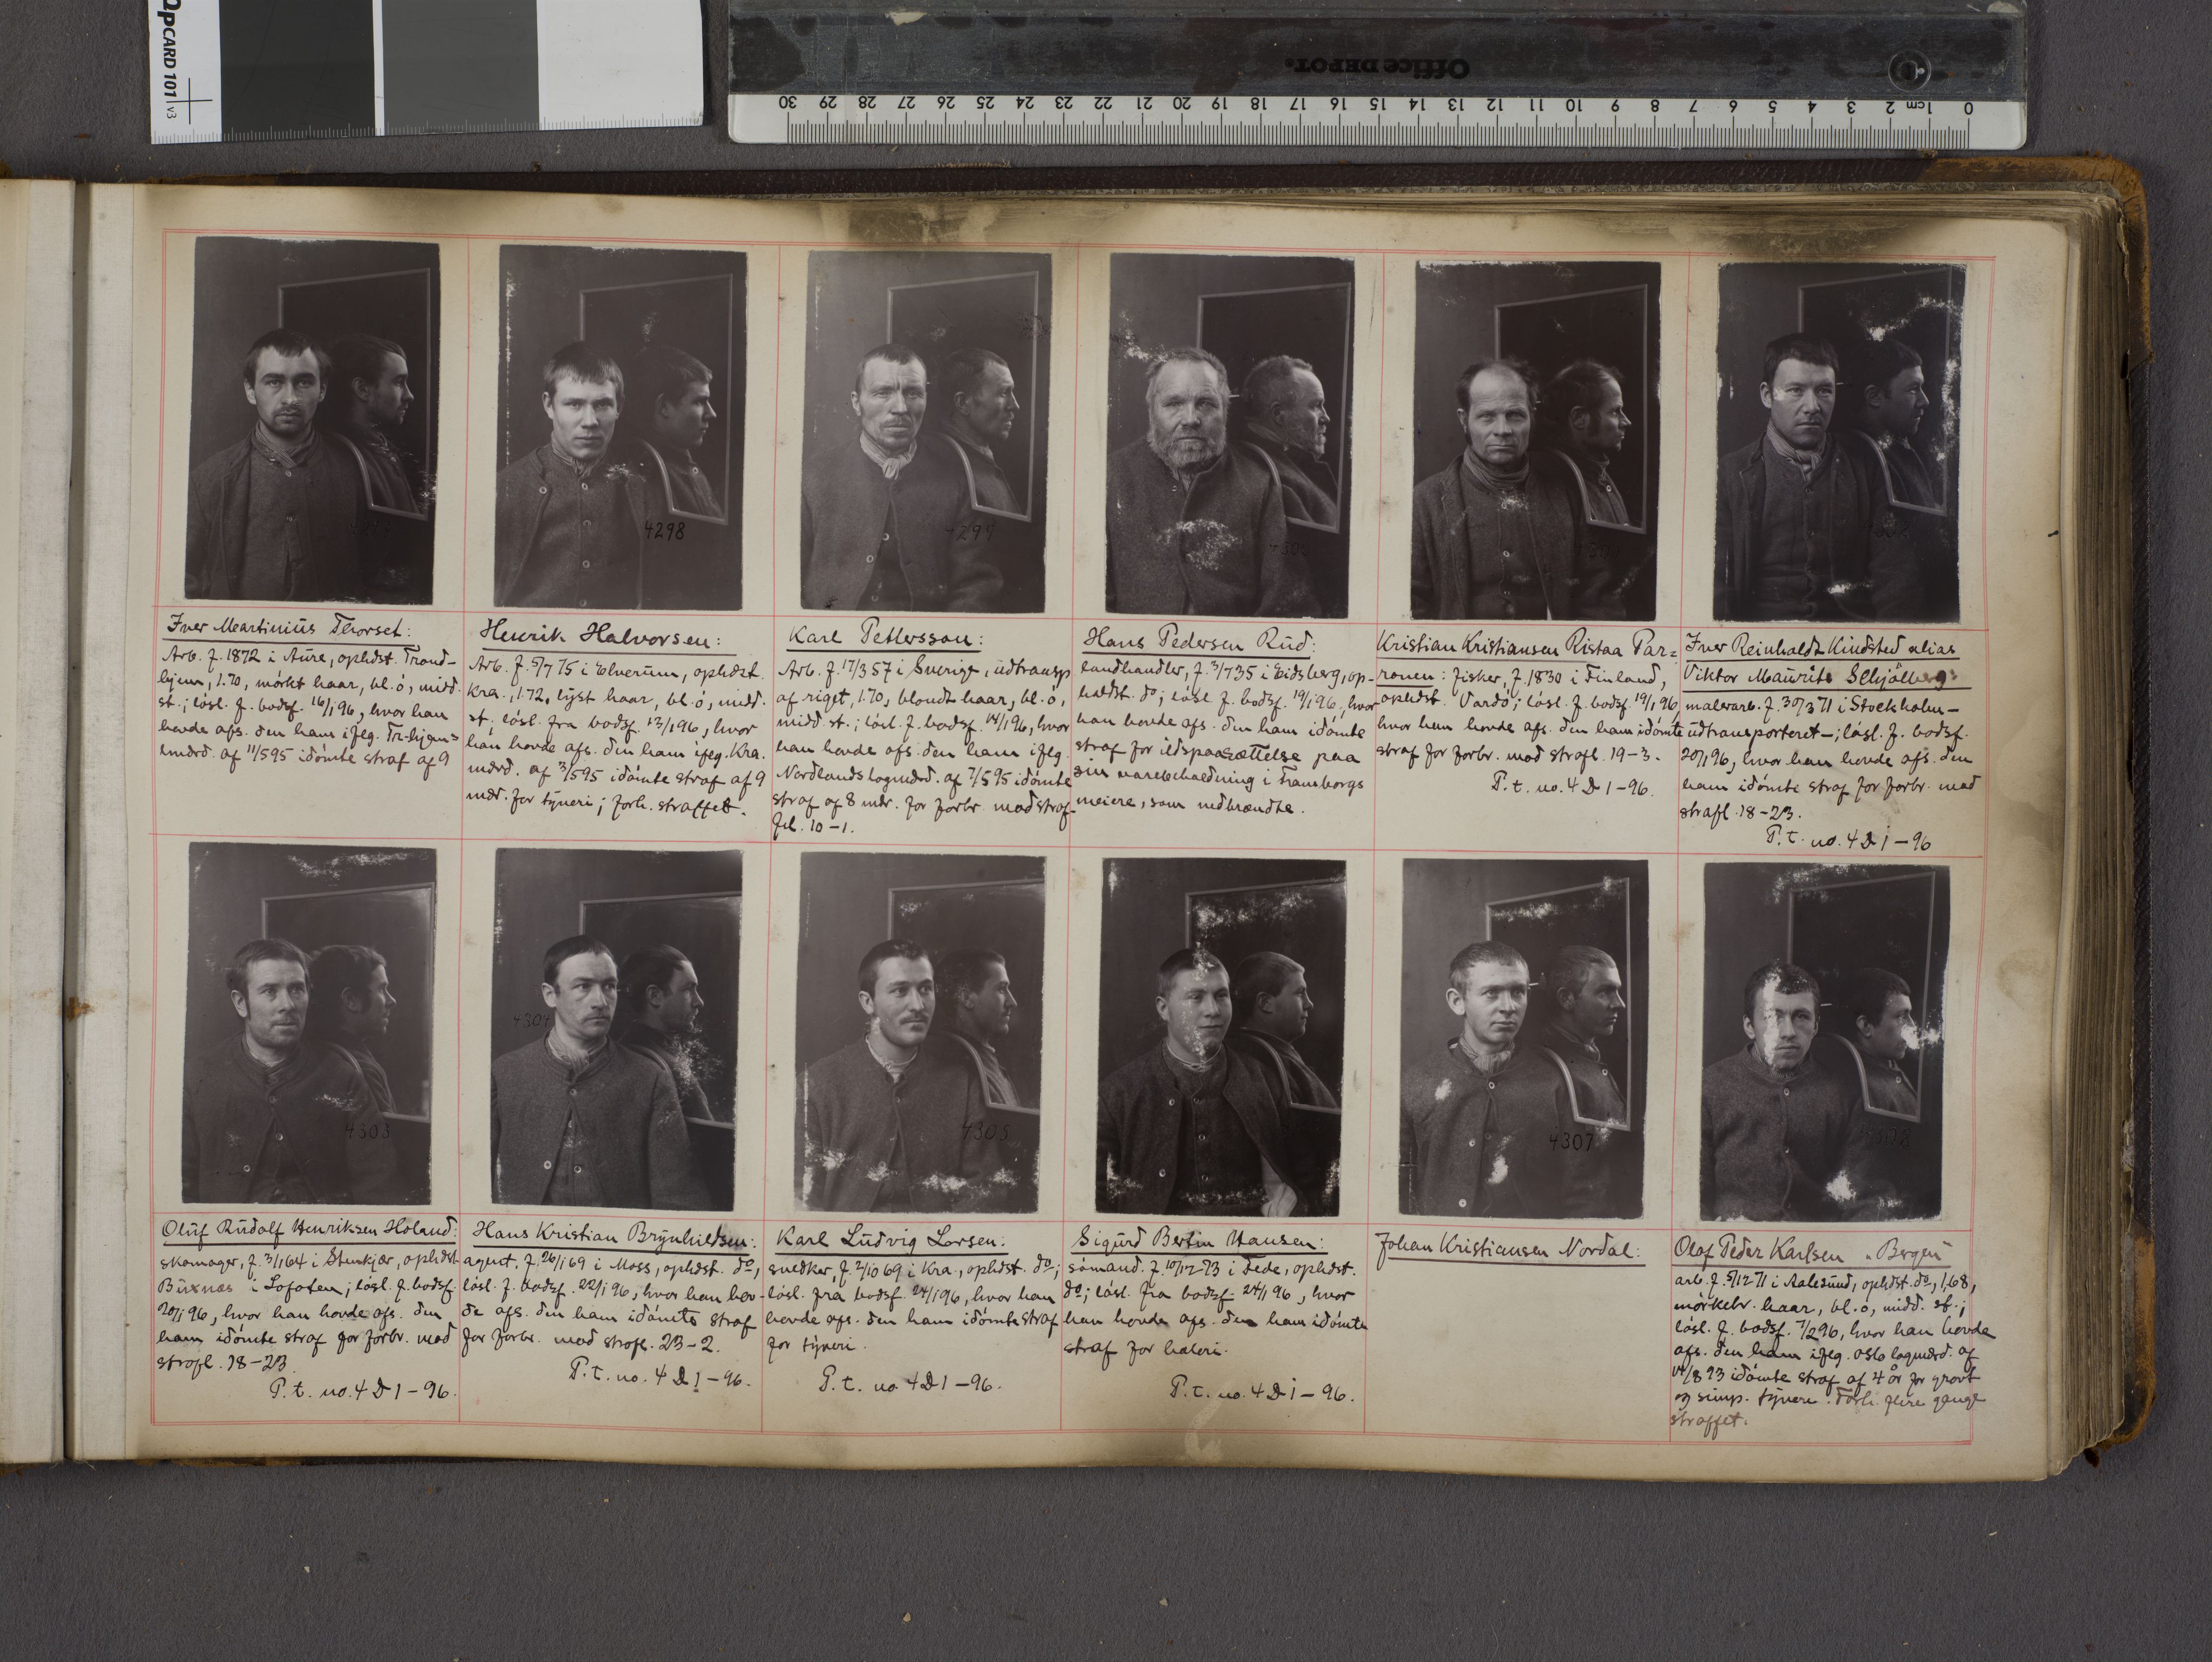 OPCARD 101 v3
Office DEPOT.
0 1 cm 2 3 4 5 6 7 8 9 10 11 12 13 14 15 16 17 18 19 20 21 22 23 24 25 26 27 28 29 30
4298
4299
Iver Martinius Thorset:
Arb. f. 1872 i Aure, ophdst. Trond-
hjem, 1.70, mörkt haar, bl. ö, midd.
st.; lösl. f. bodsf. 16/1 96, hvor han
havde afs. den ham ifølg. Tr-hjems
lmdrd. af 11/5 95 idömte straf af 9
Henrik Halvorsen:
Arb. f. 5/7 75 i Elverum, ophdst.
Kra., 1.72, lyst haar, bl. ö, midd.
st; lösl. fra bodsf. 13/1 96, hvor
han havde afs. den ham ifeg. Kra.
mdrd. af 3/5 95 idömte straf af 9
mdr. for tyveri; forh. straffet.
Karl Pettersson:
Arb. f. 17/3 57 i Sverige, udtransp
af riget, 1.70, blondt haar, bl. ö,
midd st.; lösl. f. bodsf. 14/1 96, hvor
han havde afs. den ham ifeg.
Nordlands lagmdrd. af 7/5 95 idömte
straf af 8 mdr. for forbr. mod straf-
fel. 10-1.
Hans Pedersen Rud:
landhandler, f. 3/7 35 i Eidsberg, op-
holdst. do; lösl. f. bodsf. 19/1 96, hvor
han havde afs. den ham idömte
straf for ildspaasættelse paa
sin varebeholdning i Tramborgs
meieri, som nedbrændte.
Kristian Kristiansen Ristaa Par=
ronen: fisker, f. 1830 i Finland,
ophdst. Vardö; lösl. f. bodsf. 19/1 96,
hvor han havde afs. den ham idömte
straf for forbr. mod strafl. 19-3.
P. t. no. 4 D 1-96.
Iver Reinholdt Kindsted alias
Viktor Maurits Schjölberg:
malerarb. f. 30/3 71 i Stockholm-
udtransporteret-; lösl. f. bodsf.
20/1 96, hvor han havde afs. den
ham idömte straf for forbr. mod
strafl. 18-23.
P. t. no. 4 D 1-96
4303
4304
4305
4307
Oluf Rudolf Henriksen Holand:
skomager, f. 3/1 64 i Stenkjær, ophdst
Buxnæs i Lofoten; lösl. f. bodsf.
20/1 96, hvor han havde afs. den
ham idömte straf for forbr. mod
strafl. 18-23.
P. t. no. 4 D 1-96.
Hans Kristian Brynhildsen:
agent, f. 26/1 69 i Moss, ophdst. do,
lösl. f. bodsf. 22/1 96, hvor han hav-
de afs. den ham idömte straf
for forbr. mod strafl. 23-2.
P. t. no. 4 D 1-96.
Karl Ludvig Larsen:
snedker, f. 2/10 69 i Kra., ophdst. do;
lösl. fra bodsf. 24/1 96, hvor han
havde afs. den ham idömte straf
for tyveri.
P. t. no. 4 D 1-96.
Sigurd Bertin Hansen:
sömand. f. 10/12 73 i Fede, ophdst.
do; lösl. fra bodsf. 24/1 96, hvor
han havde afs. den ham idömte
straf for hæleri.
P. t. no. 4 D 1-96.
Johan Kristiansen Nordal:
Olaf Peder Karlsen "Bergen"
arb. f. 5/12 71 i Aalesund, ophdst. do, 1,68,
mörkebr. haar, bl. ö, midd. st.;
lösl. f. bodsf. 7/2 96, hvor han havde
afs. den ham ifeg. Oslo lagmdrd. af
14/8 93 idömte straf af 4 år for grovt
og simp. tyveri. Forh. flere gange
straffet.